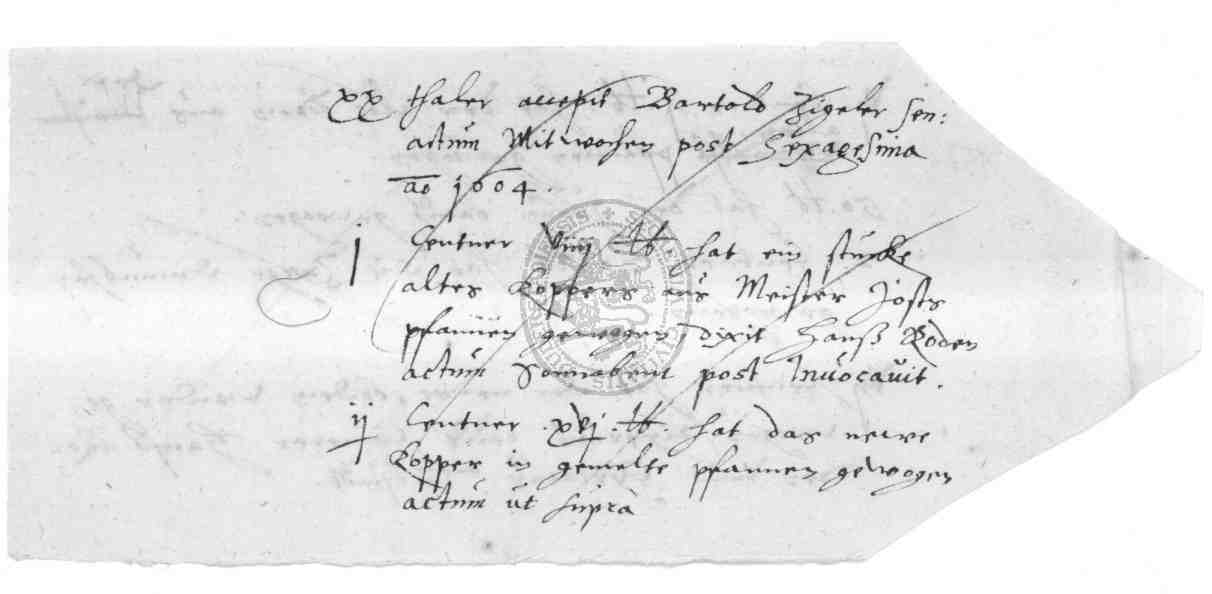 xx thaler accepit Bartold Zigeler sen:
actum Mitwochen post Sexagesima
ao 1604.
j Centner viiij lb hat ein stucke
altes Koppers aus Meister Josts
pfannen gewogen, dixit Hanß Roden
actum Sonnabent post Invocavit.
ij Centner xvj lb. hat das newe
Kopper in gemelte pfannen gewogen
actum ut supra